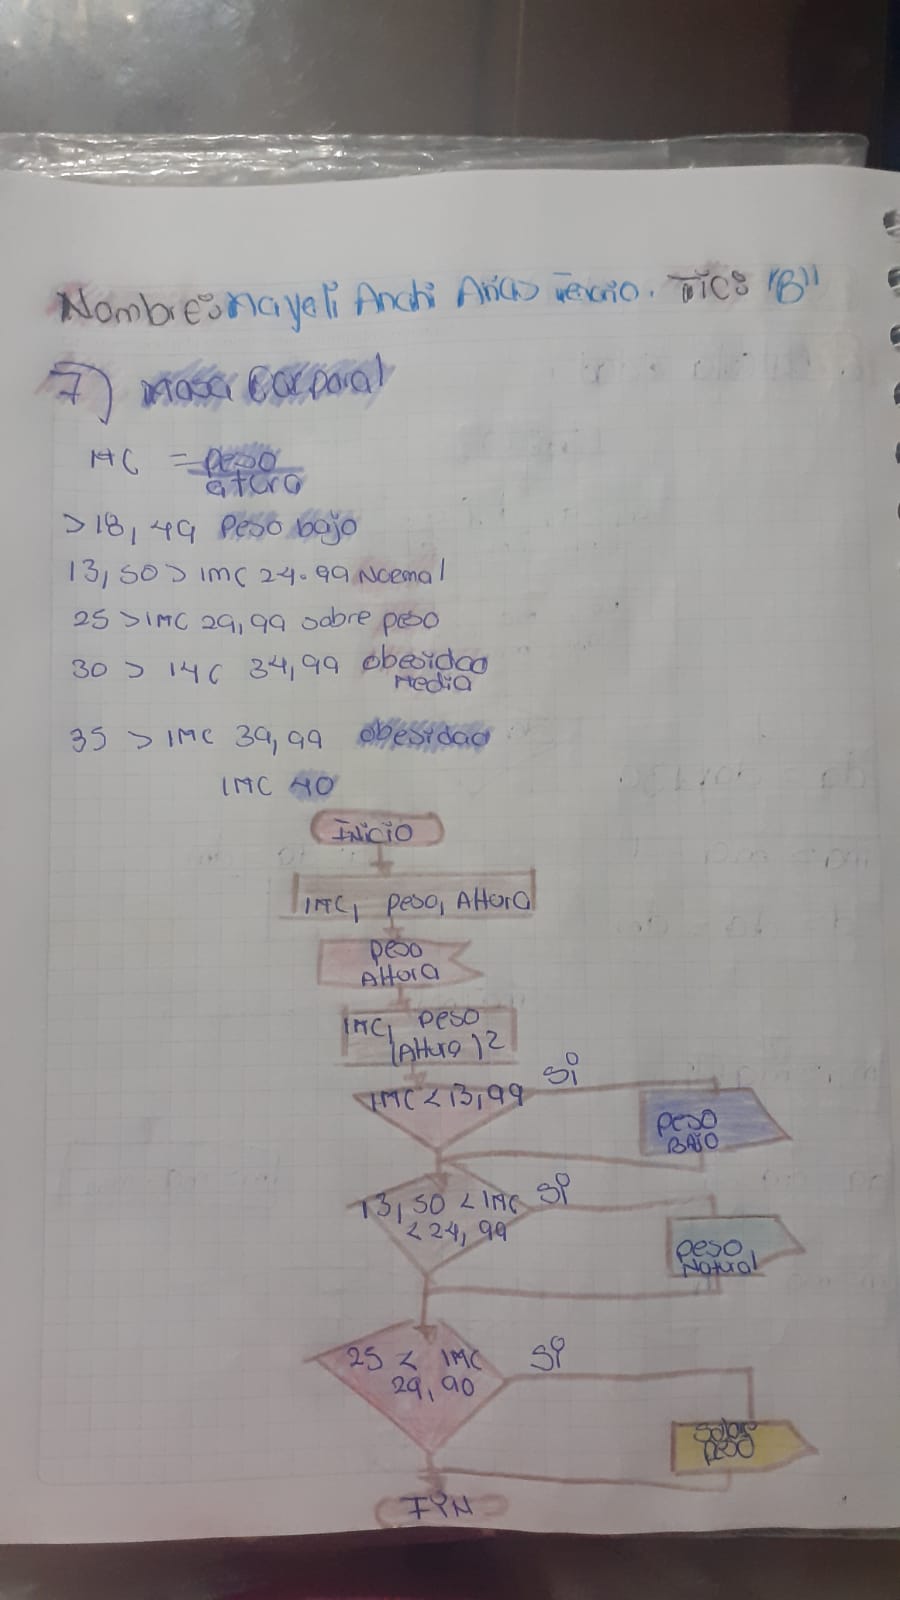 Nombre: Nayeli Anchi Arias Tercio. TICS "B"
7) Masa Corporal
IMC = peso
atura
>18,49 Peso bajo
13,50 > IMC 24.99 Noemal
25 > IMC 29,99 sobre peso
30 > IMC 34,99 obesidad
Media
35 > IMC 39,99 obesidad
IMC 40
INiCiO
IMC, peso, Altura
peso
Altura
IMC, peso
(Altura)2
IMC < 13,99
Si
peso
BAJO
13,50 < IMC
< 24,99
Si
peso
Natural
25 < IMC
29,90
Si
Sobre
peso
FIN